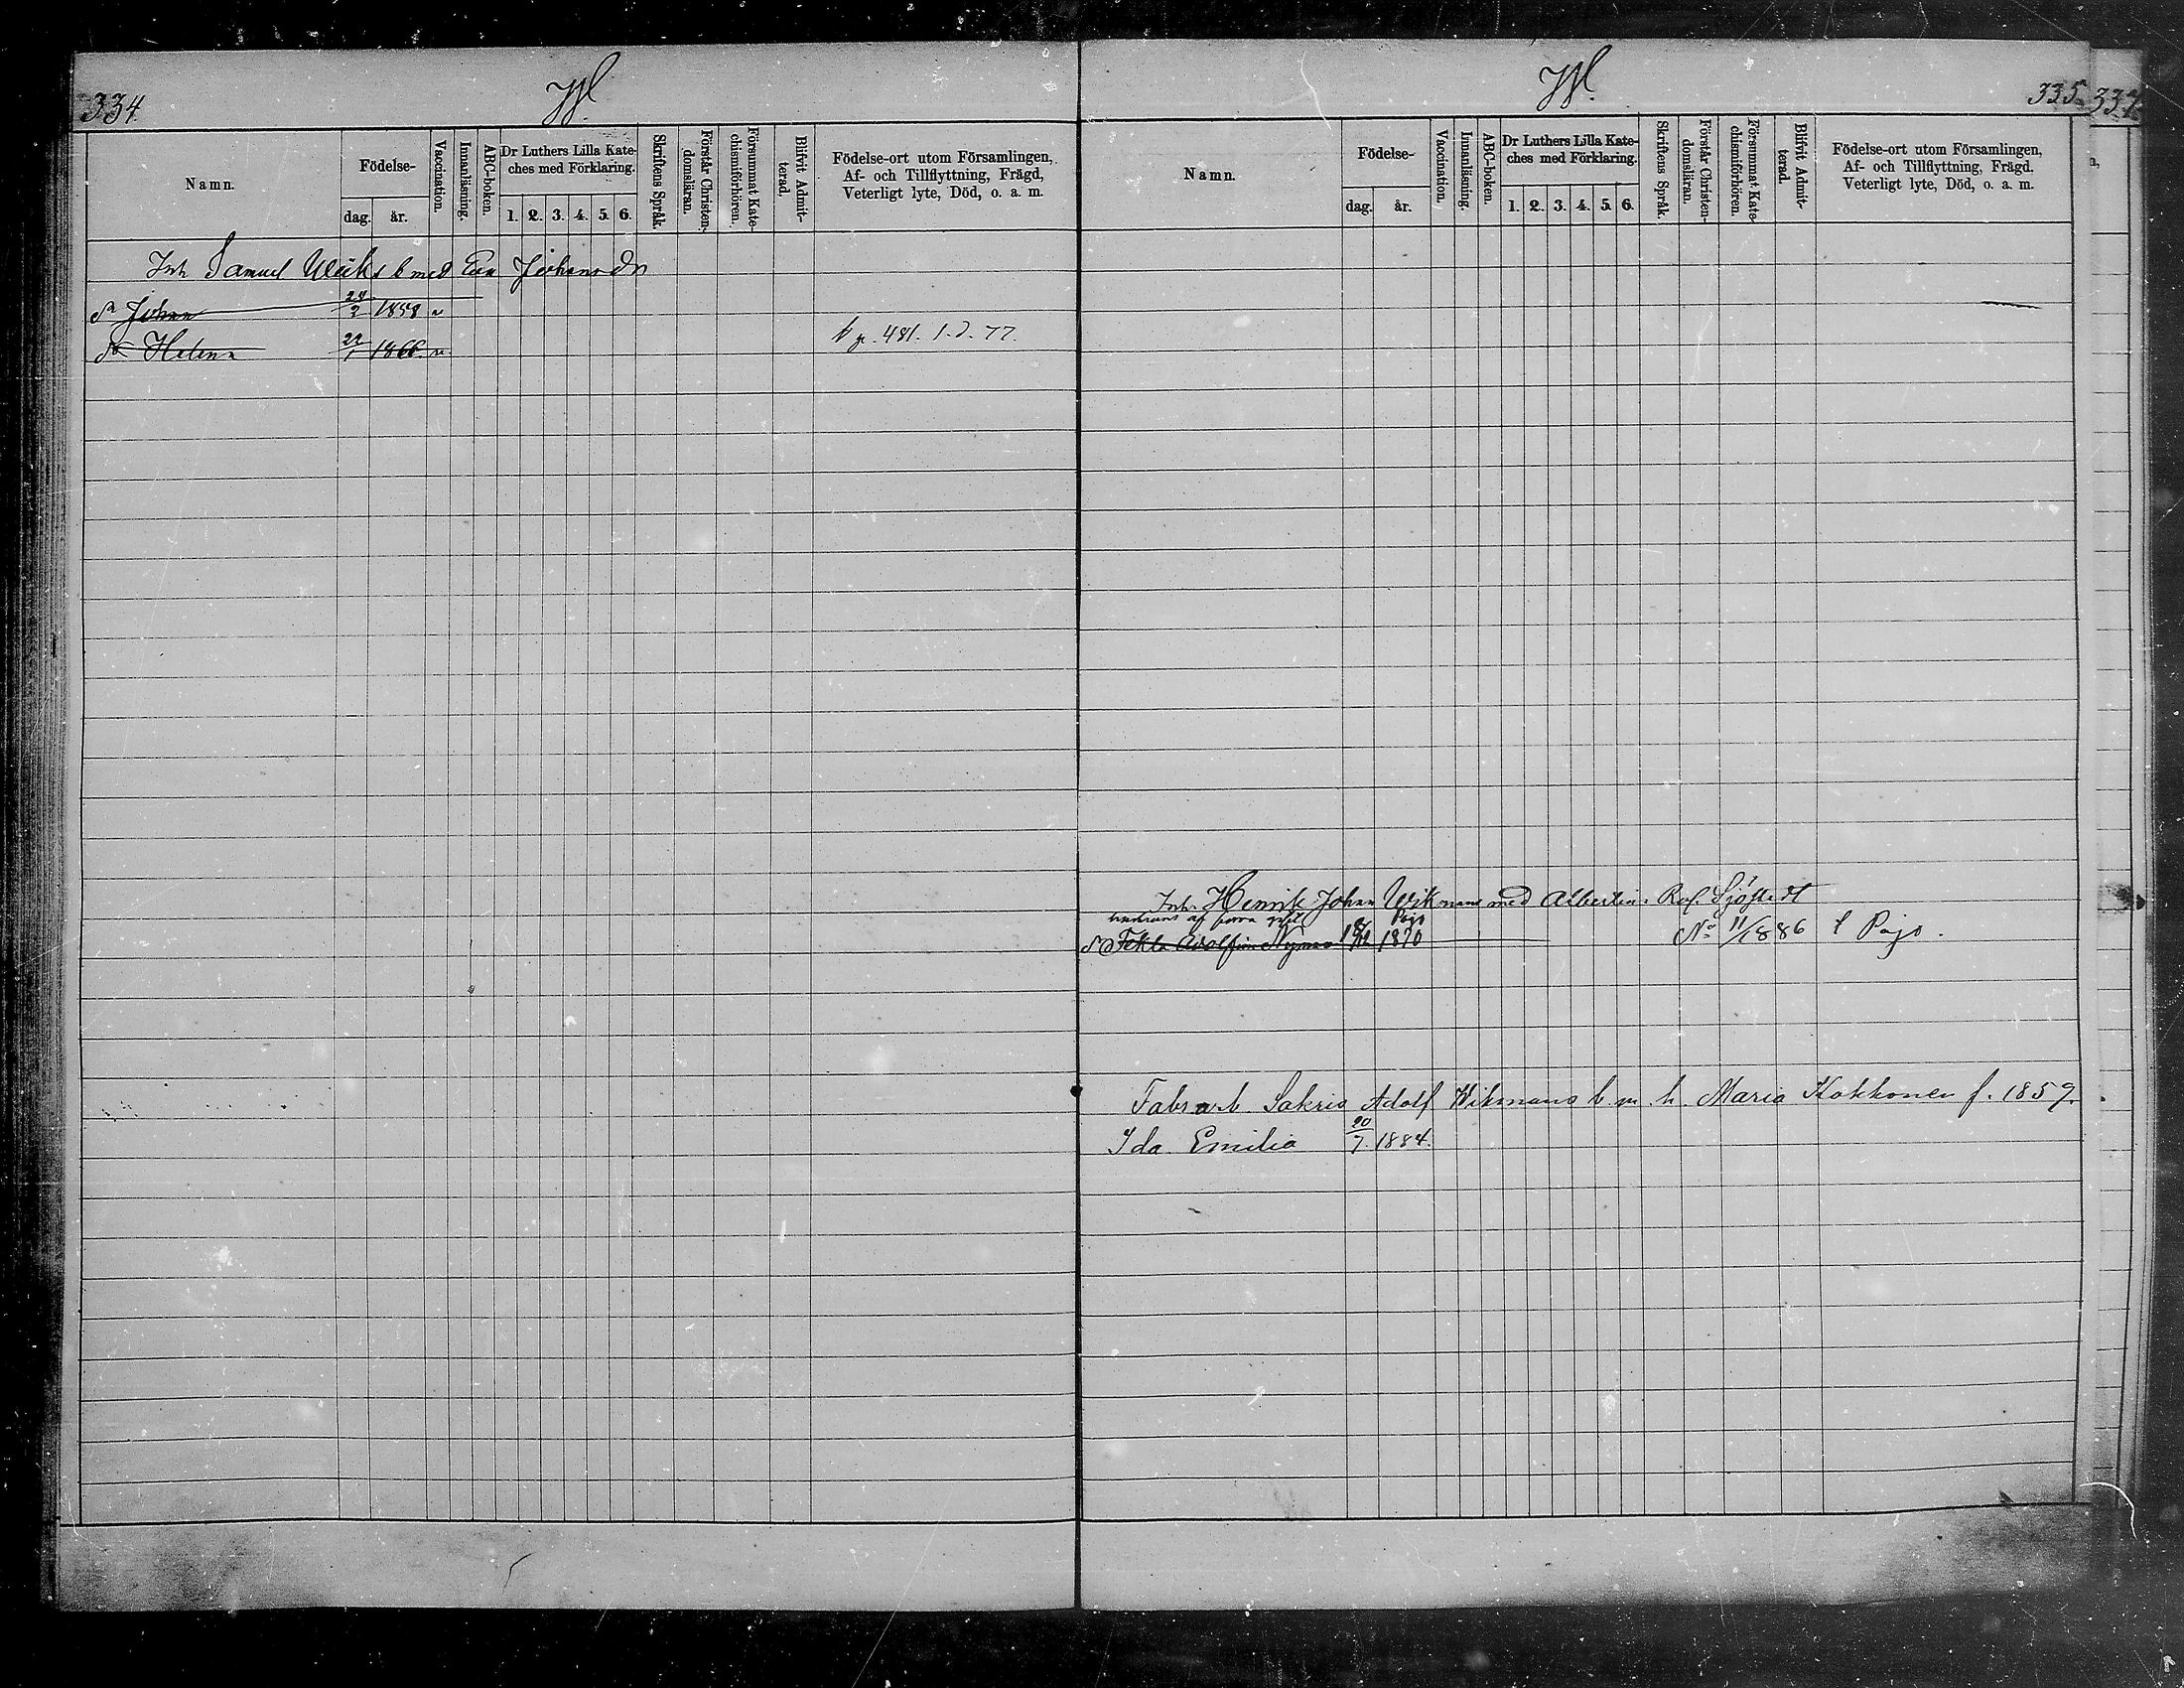 334.
W.
Namn.
Födelse-
dag.
år.
Vaccination.
Innanläsning.
ABC-boken.
Dr Luthers Lilla Kate-
ches med Förklaring.
1. 2. 3. 4. 5. 6.
Skriftens Språk.
Förstår Christen-
domsläran.
Försummat Kate-
chismiförhören.
Blifvit Admit-
terad.
Födelse-ort utom Församlingen,
Af- och Tillflyttning, Frägd,
Veterligt lyte, Död, o. a. m.
Inh Samuel b med Eva Johansdr
Johan 1858
Helena 22/1 1866. 481.
W.
335.
337.
Namn.
Födelse-
dag.
år.
Vaccination.
Innanläsning.
ABC-boken.
Dr Luthers Lilla Kate-
ches med Förklaring.
1. 2. 3. 4. 5. 6.
Skriftens Språk.
Förstår Christen-
domsläran.
Försummat Kate-
chismiförhören.
Blifvit Admit-
terad.
Födelse-ort utom Församlingen,
Af- och Tillflyttning, Frägd.
Veterligt lyte, Död, o. a. m.
Inh. Henrik Johan Wikmans med Albertin. Sjöstedt
hustruns af förra giftet Pojo
Fekla Adolfina Nyman 1870 No 11/1886 t Pojo.
Fabr arb. Sakris Adolf Wikmans b. m. h. Maria Kokkonen f. 1859.
Ida Emilia 20/7. 1884.